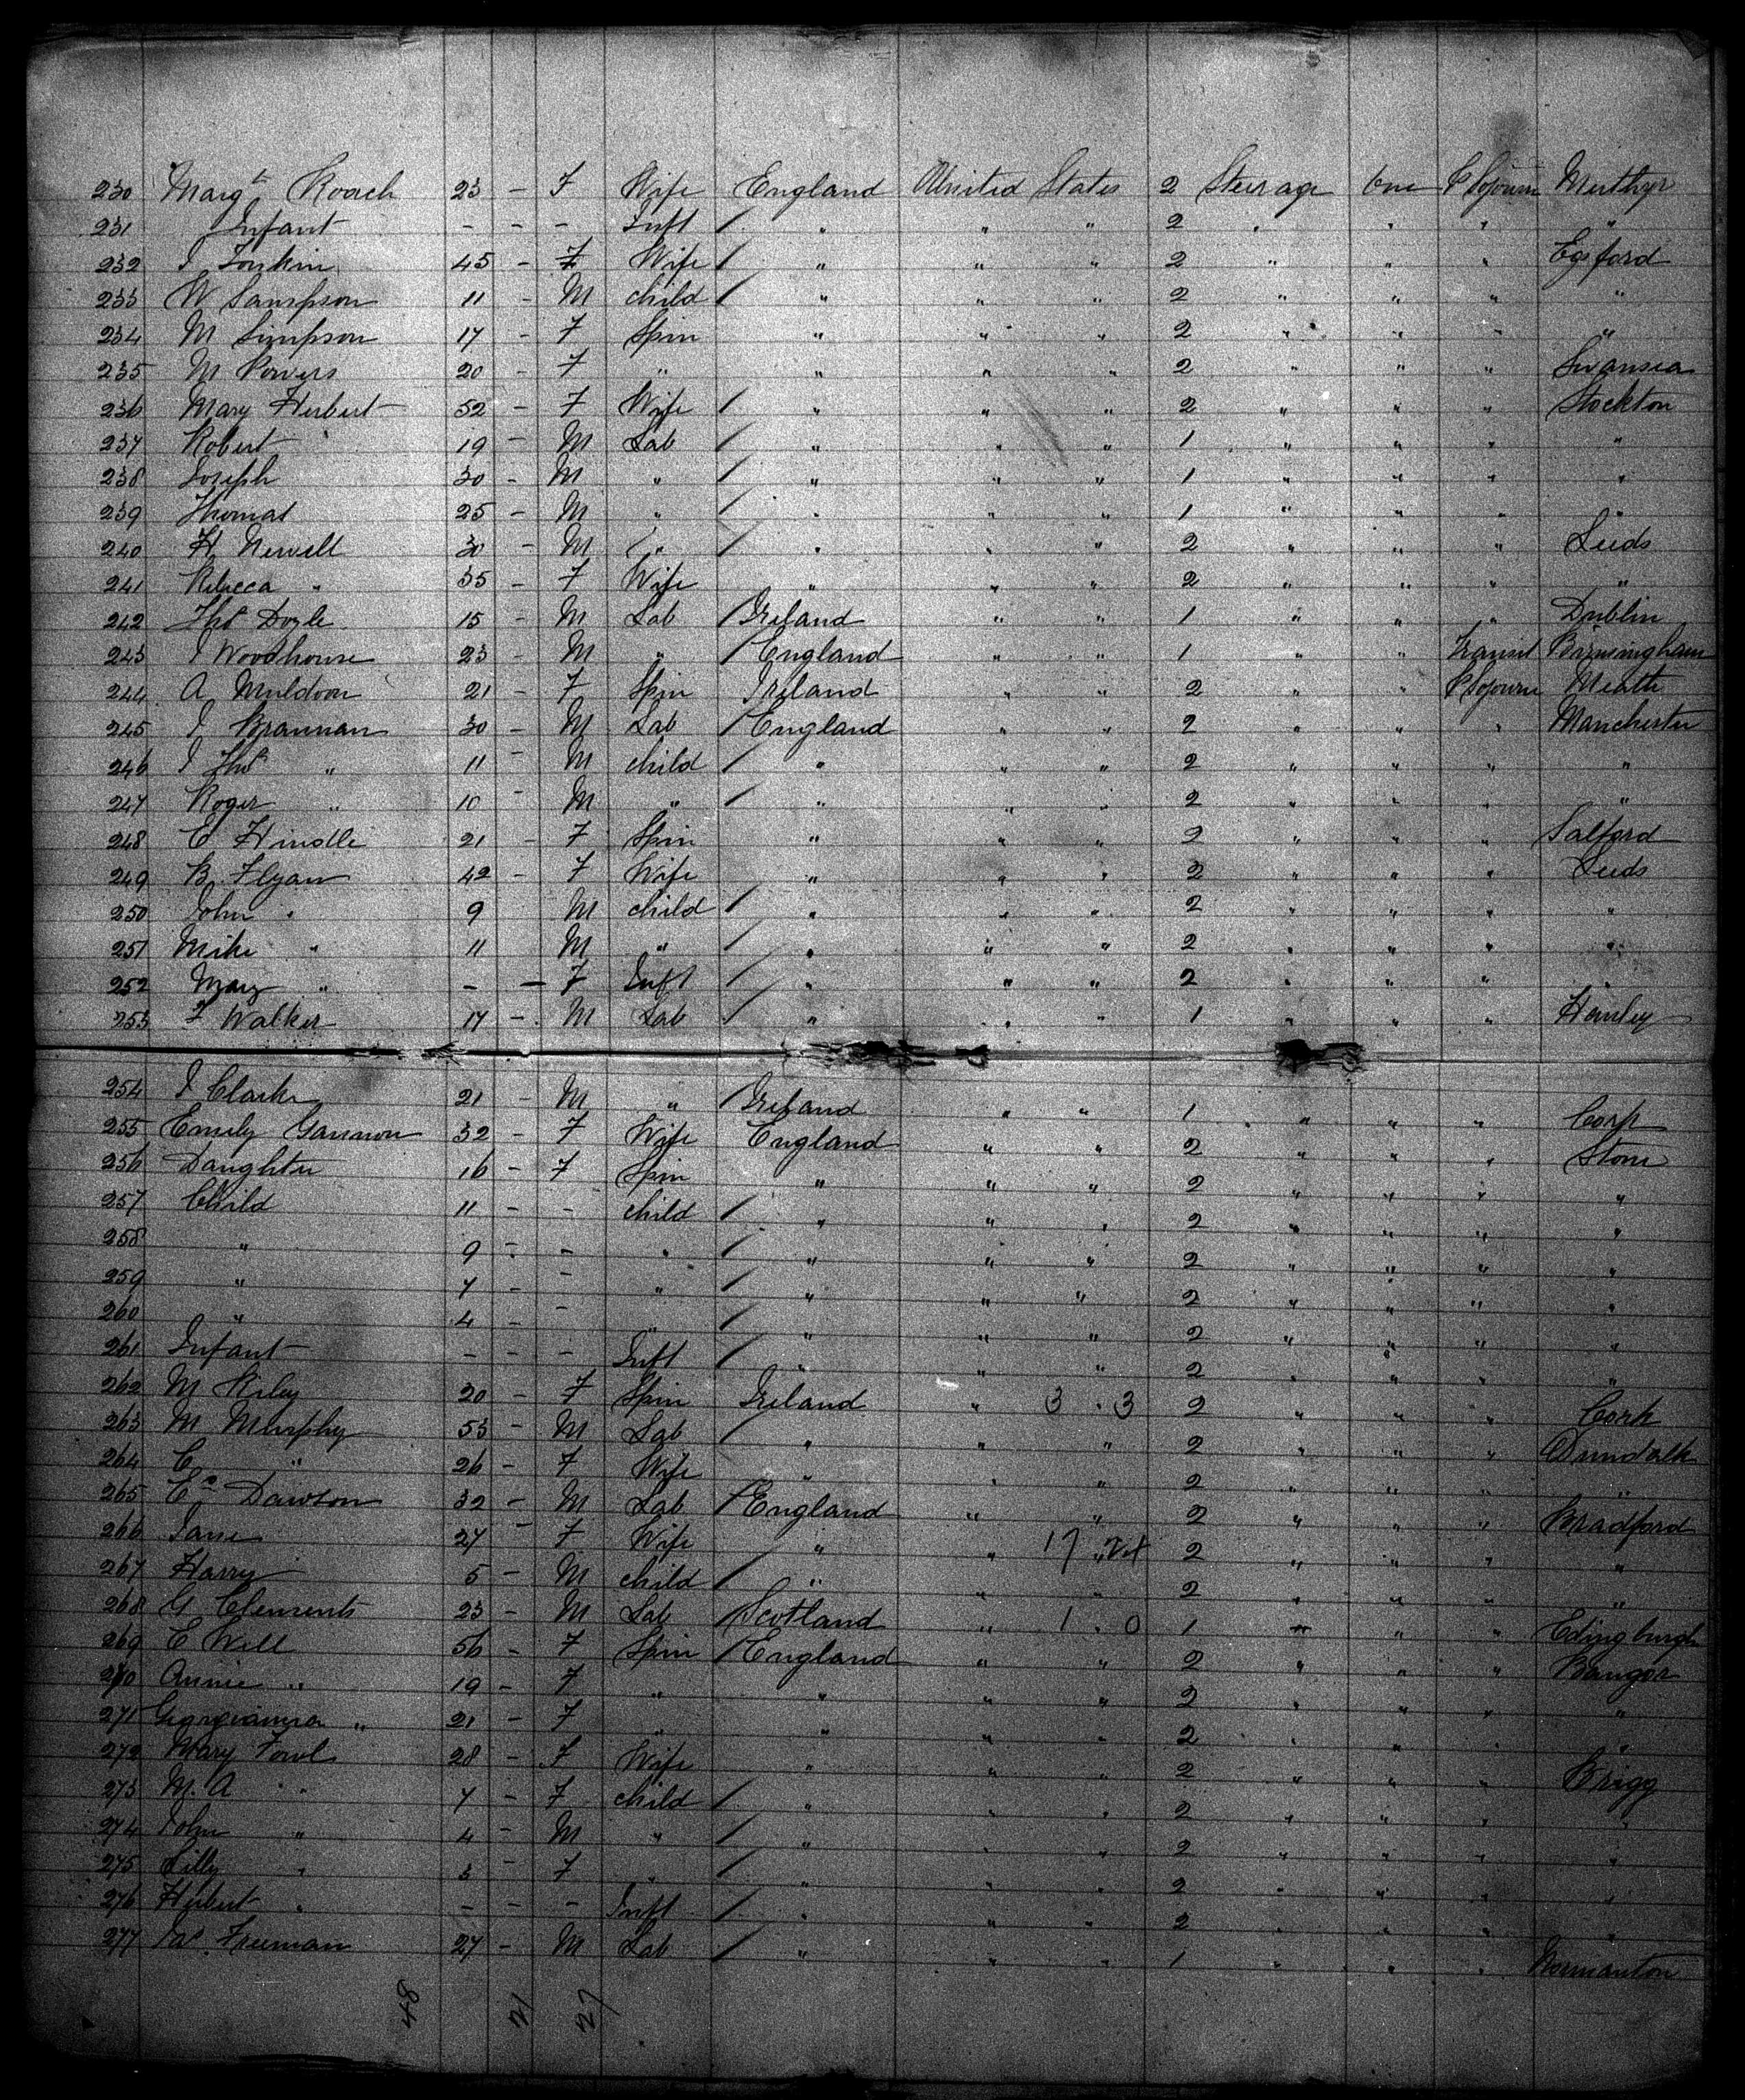 230 Margt Roach 23 - F Wife England United States 2 Steerage One P Sojourn Merthyr
231 Infant - - - Inft / " " " 2 " " " "
232 J Tonkin 45 - F Wife / " " " 2 " " "
233 W Sampson 11 - M child / " " " 2 " " " "
234 M Simpson 17 - F Spin " " " 2 " " " "
235 M Powers 20 - F " " " " 2 " " " Swansea
236 Mary Herbert 52 - F Wife / " " " 2 " " " Stockton
237 Robert " 19 - M Lab / " " " 1 " " " "
238 Joseph 30 - M " / " " " 1 " " " "
239 Thomas 25 - M " / " " " 1 " " " "
240 H Newell 30 - M " / " " " 2 " " " Leeds
241 Rebecca " 35 - F Wife " " " 2 " " " "
242 Thos Doyle 15 - M Lab / Ireland " " 1 " " " Dublin
243 J Woodhouse 23 - M " / England " " 1 " " Transit Birmingham
244 A Muldoon 21 - F Spin Ireland " " 2 " " P Sojourn Meath
245 J Brannan 30 - M Lab / England " " 2 " " " Manchester
246 J Thos " 11 - M child / " " " 2 " " " "
247 Roger " 10 - M " / " " " 2 " " " "
248 E Hindle 21 - F Spin " " " 2 " " " Salford
249 B Flynn 42 - F Wife " " " 2 " " " Leeds
250 John " 9 M child / " " " 2 " " " "
251 Mike " 11 M " / " " " 2 " " " "
252 Mary " - - F Inft / " " " 2 " " " "
253 F Walker 17 - M Lab / " " " 1 " " " Hanley
254 J Clarke 21 - M " / Ireland " " 1 " " " Cork
255 Emily Gannon 32 - F Wife England " " 2 " " " Stone
256 Daughter 16 - F Spin " " " 2 " " " "
257 Child 11 - - child / " " " 2 " " " "
258 " 9 - - " / " " " 2 " " " "
259 " 7 - - " / " " " 2 " " " "
260 " 4 - - " / " " " 2 " " " "
261 Infant - - - Inft / " " " 2 " " " "
262 M Riley 20 - F Spin Ireland " 3 " 3 2 " " " Cork
263 M Murphy 53 - M Lab / " " " 2 " " " Dundalk
264 C " 26 - F Wife " " " 2 " " " "
265 Dawson 32 - M Lab / England " " 2 " " " Bradford
266 Jane 27 - F Wife " " 17 " 2 " " " "
267 Harry 5 - M child / " " " 2 " " " "
268 G Clements 23 - M Lab / Scotland " 1 . 0 1 " " " Edingburgh
269 E Will 56 - F Spin / England " " 2 " " " Bangor
270 Annie " 19 - F " " " " 2 " " " "
271 Georgianna " 21 - F " " " " 2 " " " "
272 Mary Fowl 28 - F Wife " " " 2 " " " Brigg
273 M. A " 7 - F child / " " " 2 " " " "
274 John " 4 - M " / " " " 2 " " " "
275 Lilly " 3 - F " / " " " 2 " " " "
276 Herbert " - - - Inft / " " " 2 " " " "
277 Jas Freeman 27 - M Lab / " " " 1 " " " Normanton
48 21 27